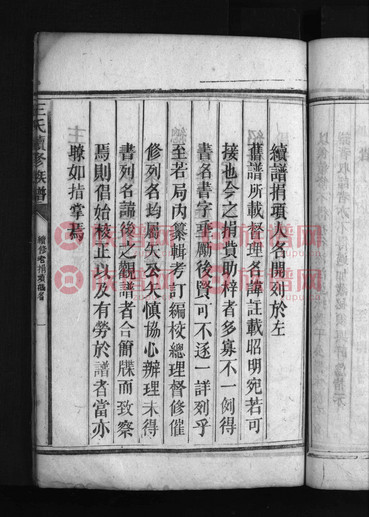 續譜捐項人名開列於左
舊譜所載督理名諱註載昭明宛若可
接也今之捐費助梓者多寡不一例得
書名書字垂勵後賢可不逐一詳列乎
至若局內纂輯考訂編校總理督修催
修列名均勵矢公矢慎協心辦理未得
書列名諱後之觀譜者合簡牒而致察
焉則倡始核正以及有勞於譜者當亦
瞭如指掌焉
王氏續修族譜
族譜網